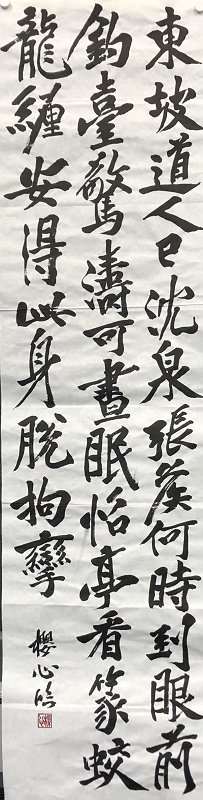 東坡道人已沈泉張侯何時到眼前
釣臺驚濤可晝眠怡亭看篆蛟
龍纏安得此身脫拘攣
櫻心临